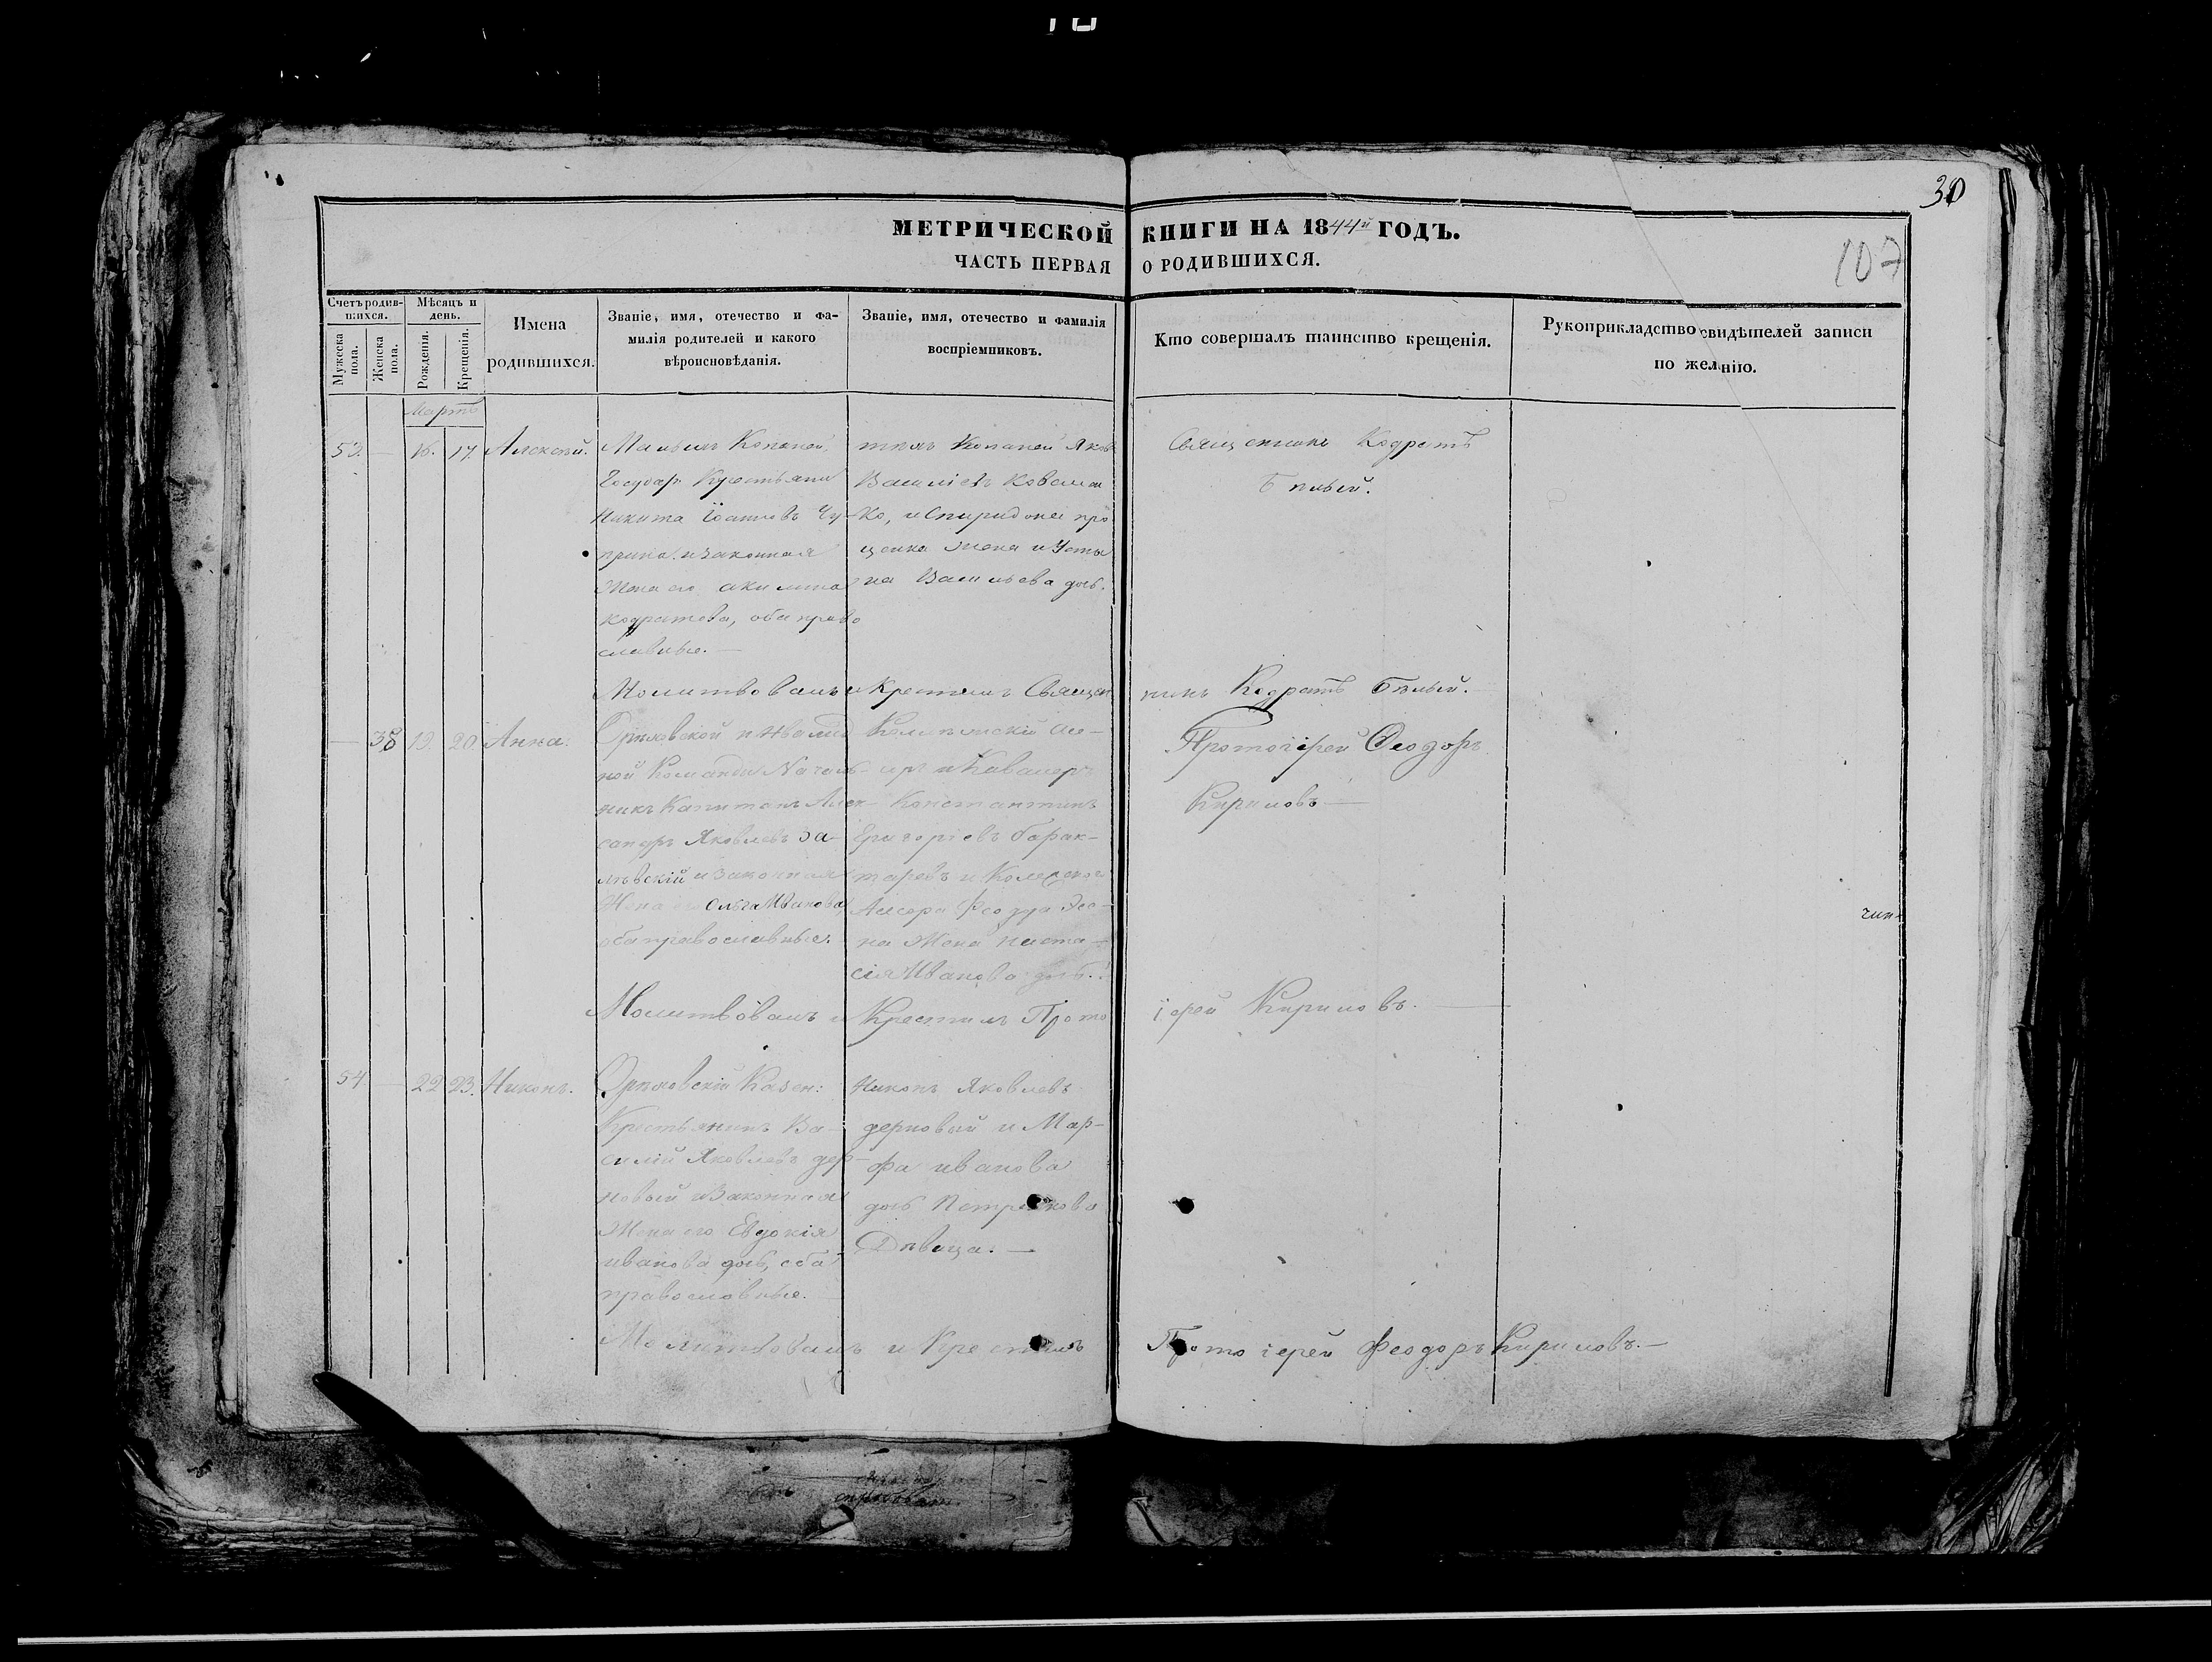 30
107
МЕТРИЧЕСКОЙ КНИГИ НА 1844й ГОДЪ.
ЧАСТЬ ПЕРВАЯ О РОДИВШИХСЯ.
Счетъ родившихся.
Мужеска пола.
Женска пола.
Мѣсяцъ и день.
Рожденія.
Крещенія.
Имена
родившихся.
Званіе, имя, отечество и фа-
милія родителей и какого
вѣроисновѣданія.
Званіе, имя, отечество и фамилія
воспріемниковъ.
Кто совершалъ таинство крещенія.
Рукоприкладство свидѣтелей записи
по желанію.
Мартъ
53. — 16. 17. Алексѣй.
Государ. Крестьянинъ
Никита Іоанновъ Чу-
прина. и законная
жена его акилина
кодратева, оба право
славные. —
Василіевъ Ковален
ко, и Спиридона про
ценка жена и Усты
на Васильева дочь.
Священникъ Кодратъ
Бѣлый.
Молитвовалъ и Крестилъ Священ
никъ Кодратъ Бѣлый. —
— 38 19. 20. Анна.
Орѣховской инвалид
ной Команды Началь-
никъ Капитанъ Алек-
сандръ Яковлевъ За-
лѣвскій и законная
Жена его Ольга Иванова
оба православные.
иръ и Кавалеръ
Константинъ
Григоріевъ Барак-
таревъ и Колежскаго
на Жена Наста-
сія Иванова дочь.
Протоіерей Феодоръ
Кириловъ —
чин
Молитвовалъ и Крестилъ Прото
іерей Кириловъ. —
54 — 22 23. Никонъ.
Орѣховскій Казен:
Крестьянинъ Ва-
силій Яковлевъ дер-
новый и Законная
Жена его Евдокія
иванова дочь, оба
православные.
Никонъ Яковлевъ
дерновый и Мар-
фа иванова
дочь Петрикова
Дѣвица. —
Молитвовалъ и Крестилъ
Протоіерей Феодоръ Кириловъ. —